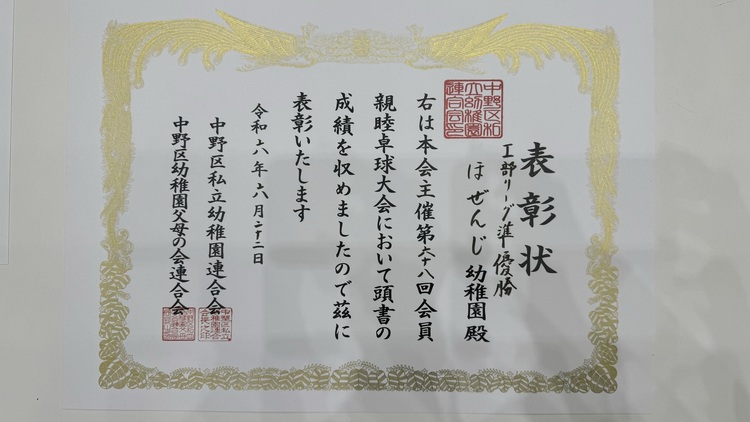 表彰状
Ⅰ部リーグ準優勝
ほぜんじ幼稚園殿
右は本会主催第六十八回会員
親睦卓球大会において頭書の
成績を収めましたので茲に
表彰いたします
令和六年六月二十二日
中野区私立幼稚園連合会
中野区幼稚園父母の会連合会